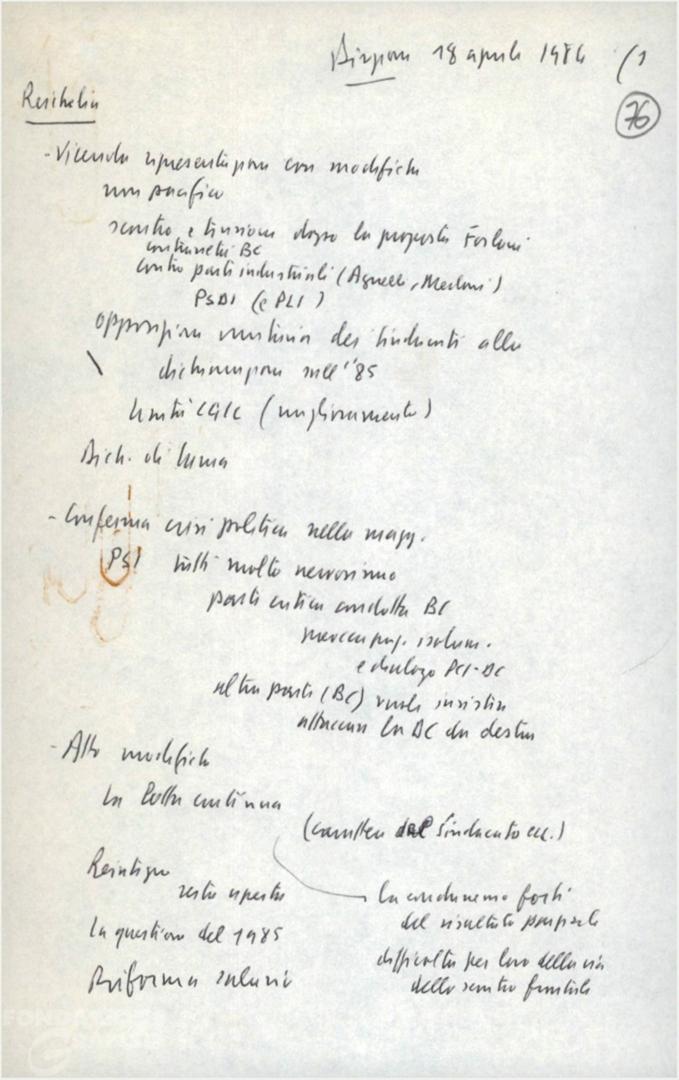 Direzione 18 aprile 1984 (1
76
Reichlin
- Vicenda ripresentazione con modifiche
non pacifico
scontro e tensione dopo la proposta Forlani
contrarietà BC
contro parti industriali (Agnelli, Merloni)
PSDI (e PLI)
opposizione unitaria dei sindacati alla
dichiarazione sull'85
Unità CGIL (miglioramento)
Dich. di Lama
- Conferma crisi politica nella magg.
PSI tutti molto nervosismo
parte critica condotta BC
isolam.
e dialogo PCI-DC
altra parte (BC) vuole insistere
attaccare la DC da destra
- Altre modifiche
La lotta continua
(carattere del Sindacato ecc.)
Reintegro
resta aperta
La questione del 1985
Riforma salario
La condurremo forti
del risultato parziale
difficoltà per loro della via
dello scontro frontale
FONDAZIONE